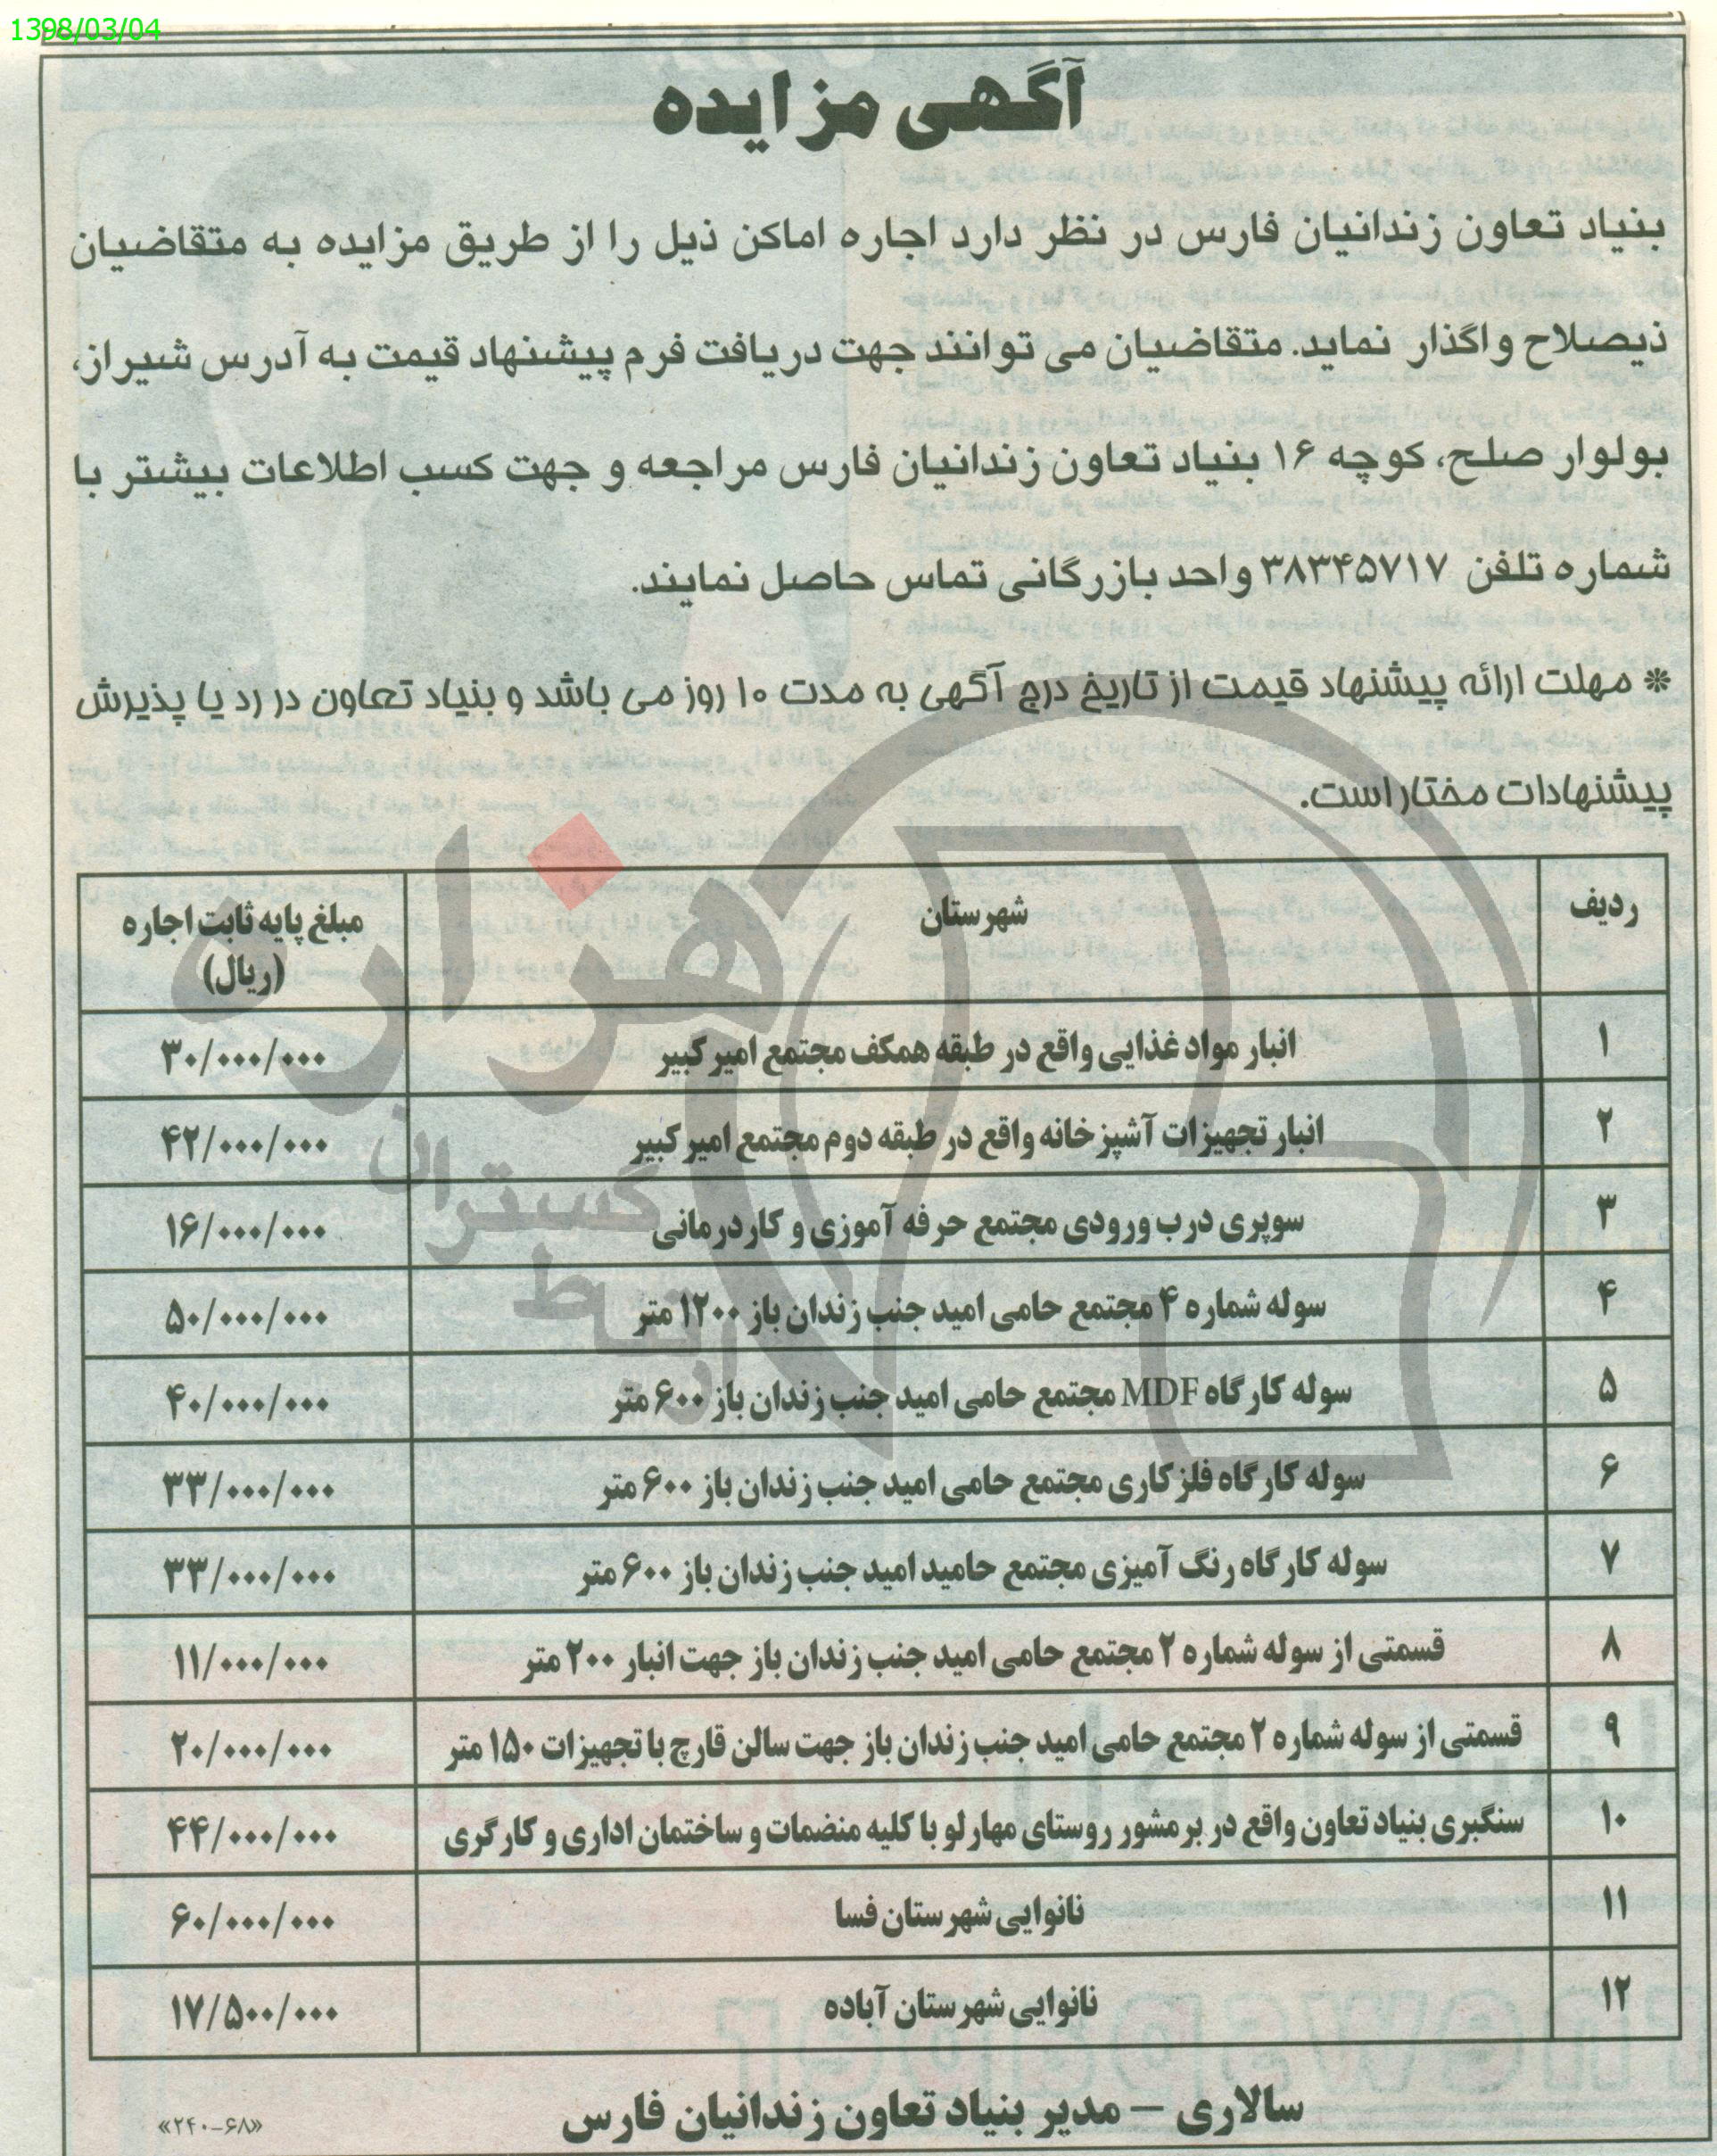 1398/03/04
آگهی مزایده
بنیاد تعاون زندانیان فارس در نظر دارد اجاره اماکن ذیل را از طریق مزایده به متقاضیان
ذیصلاح واگذار نماید. متقاضیان می توانند جهت دریافت فرم پیشنهاد قیمت به آدرس شیراز،
بولوار صلح، کوچه ۱۶ بنیاد تعاون زندانیان فارس مراجعه و جهت کسب اطلاعات بیشتر با
شماره تلفن ۳۸۳۴۵۷۱۷ واحد بازرگانی تماس حاصل نمایند.
* مهلت ارائه پیشنهاد قیمت از تاریخ درج آگهی به مدت ۱۰ روز می باشد و بنیاد تعاون در رد یا پذیرش
پیشنهادات مختار است.
ردیف شهرستان مبلغ پایه ثابت اجاره
(ریال)
۱ انبار مواد غذایی واقع در طبقه همکف مجتمع امیر کبیر ۳۰/۰۰۰/۰۰۰
۲ انبار تجهیزات آشپزخانه واقع در طبقه دوم مجتمع امیر کبیر ۴۲/۰۰۰/۰۰۰
۳ سوپری درب ورودی مجتمع حرفه آموزی و کاردرمانی ۱۶/۰۰۰/۰۰۰
۴ سوله شماره ۴ مجتمع حامی امید جنب زندان باز ۱۲۰۰ متر ۵۰/۰۰۰/۰۰۰
۵ سوله کارگاه MDF مجتمع حامی امید جنب زندان باز ۶۰۰ متر ۴۰/۰۰۰/۰۰۰
۶ سوله کارگاه فلزکاری مجتمع حامی امید جنب زندان باز ۶۰۰ متر ۳۳/۰۰۰/۰۰۰
۷ سوله کارگاه رنگ آمیزی مجتمع حامید امید جنب زندان باز ۶۰۰ متر ۳۳/۰۰۰/۰۰۰
۸ قسمتی از سوله شماره ۲ مجتمع حامی امید جنب زندان باز جهت انبار ۲۰۰ متر ۱۱/۰۰۰/۰۰۰
۹ قسمتی از سوله شماره ۲ مجتمع حامی امید جنب زندان باز جهت سالن قارچ با تجهیزات ۱۵۰ متر ۲۰/۰۰۰/۰۰۰
۱۰ سنگبری بنیاد تعاون واقع در برمشور روستای مهارلو با کلیه منضمات و ساختمان اداری و کارگری ۴۴/۰۰۰/۰۰۰
۱۱ نانوایی شهرستان فسا ۶۰/۰۰۰/۰۰۰
۱۲ نانوایی شهرستان آباده ۱۷/۵۰۰/۰۰۰
سالاری – مدیر بنیاد تعاون زندانیان فارس
«۲۴۰-۶۸»
هزاره
گستران